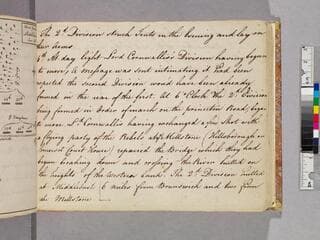 The 2d Division struck Tents in the Evening and lay on
their Arms
5th At day light Lord Cornwallis's Division having begun
to move, a Message was sent intimating it had been
expected the second Division wou'd have been already
formed in the rear of the first. At 6 o'Clock the 2d Division
being formed in Order of march on the princeton Road, began
to move. Ld Cornwallis having exchanged a few Shot with
a flying party of the Rebels at Millstone (Hillsborough or
Somerset Court House) repaired the Bridge which they had
begun breaking down and crossing the River halted on
the heights of the Western bank. The 2d Division halted
at Middlebush (6 miles from Brunswick and two from
the Millstone